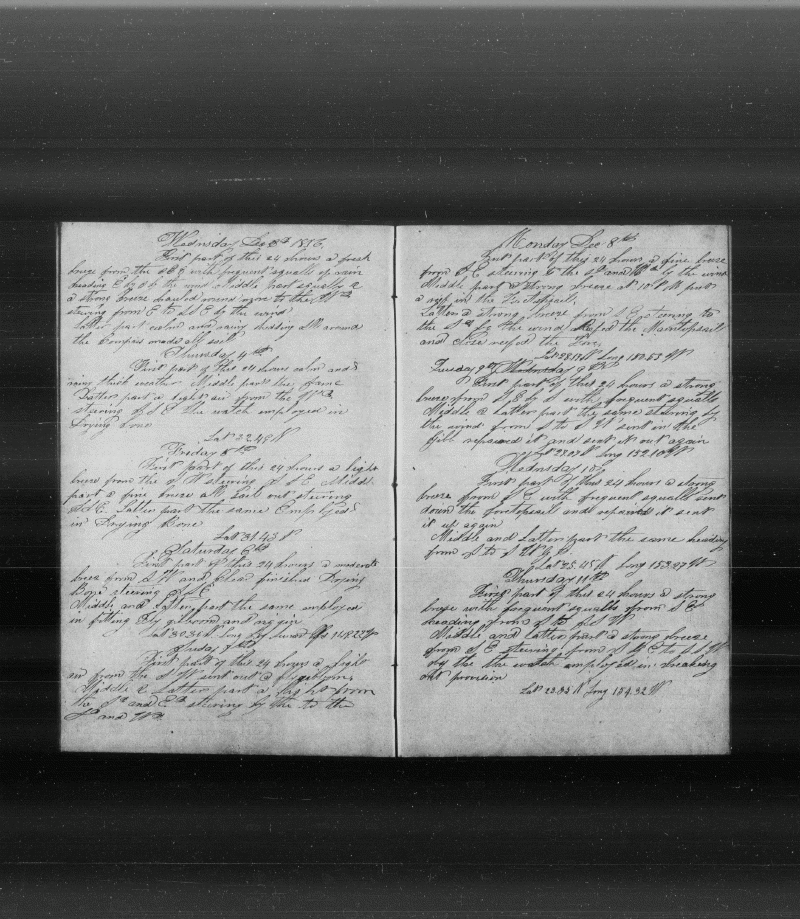 Wednsday Dec 3th 1856
First part of this 24 hours a fresh
breze from the S E with frequent squalls of rain
heading E by S by the wind Middle part squally &
a strong breze hauled round more to the
stering from E to S E by the wind
Latter part calm and rainy heading all around
the Compass made all sail
Thursday 4th
First part of this 24 hours calm and
rainy thick weather Middle part the same
Latter part a light air from the
stering S E the watch employed in
Drying bone
Lat 32.48 N
Friday 5th
First part of this 24 hours a light
breze from the S W steering S S E Middl
part a fine breze all sail out steering
S S E Latter part the same Employed
in Drying Bone
Lat 31.43 N
Saturday 6th
First part of this 24 hours a moderate
breze from S W and Clear finished Drying
Bone steering S S E
Middle and Latter part the same employed
in fitting flying gibboom and rigin
Lat 30.36 N Long by Lunar 148.22 W
Sunday 7th
First part of this 24 hours a light
air from the S W sent out a
Middle & Latter part a light from
the Sd and Ed steering by the to the
Sd and Wd
Monday Dec 8th
First part of this 24 hours a fine breze
from S E steering to the Sd and Wd by the wind
Middle part a strong breeze at 10 P M put
a reef in the
Latter a strong breeze from S E steering to
the Sd by the wind Reefed the Maintopsail
and close reefed the Fore
Lat 28.17 N Long 150.53 W
Tuesday 9th Wednesday 9th
First part of this 24 hours a strong
breze from S E by S with frequent squalls
Middle & Latter part the same steering by
the wind from S to S W sent in the
repaired it and sent it out again
Lat 27.07 N Long 152.10 W
Wednsday 10
First part of this 24 hours a strong
breze from S E with frequent squalls sent
down the foretopsail and repaired it sent
it up again
Middle and Latter part the same heading
from S to S W
Lat 25.45 N Long 153.27 W
Thursday 11th
First part of this 24 hours a strong
breze with frequent squalls from S E
heading from S to S W
Middle and latter part a strong breeze
from S E steering from S to S S W
by the the watch employed in breaking
out provision
Lat 23.35 N Long 154.32 W